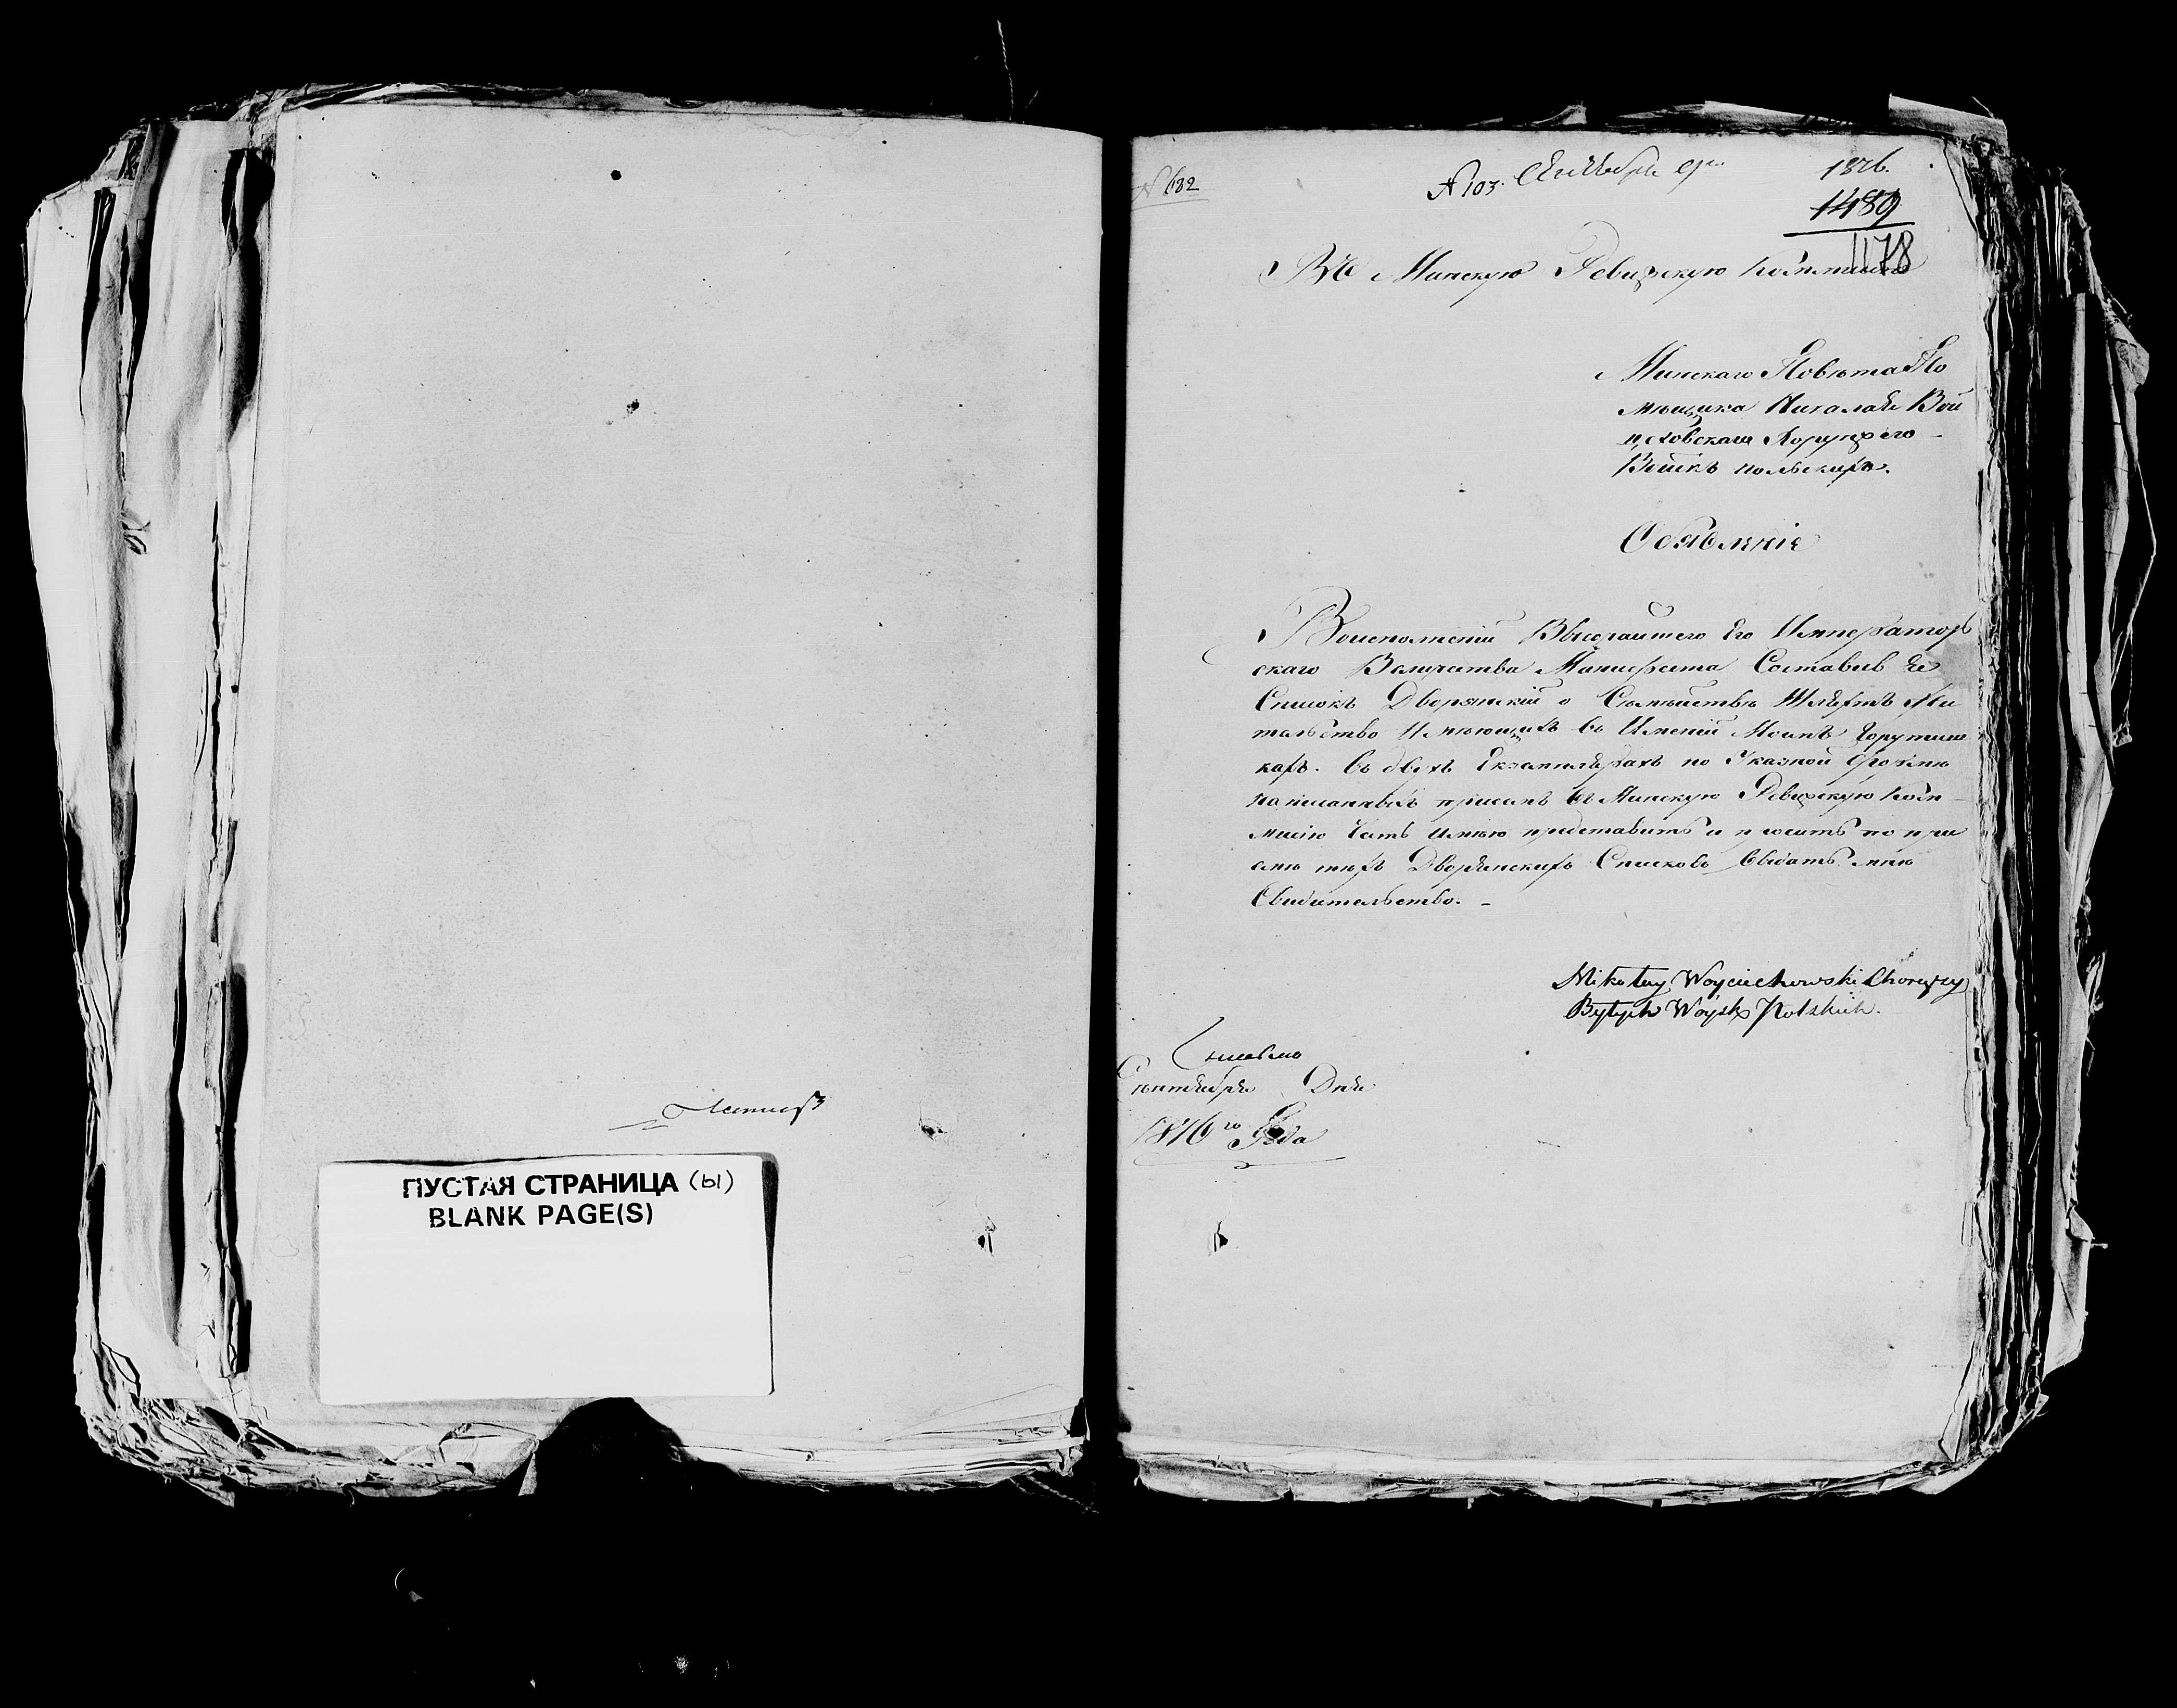 ПУСТАЯ СТРАНИЦА (ы)
BLANK PAGE(S)
№ 682
№ 103. Сентября
1816.
1489
1178
Въ Минскую Ревизскую Коммисію
Минскаго Повѣта По
мѣщика Николая Вой
цеховскаго Хорунжего
Войскъ польскихъ.
Объявленіе
Воисполненіи Высочайшего Его Император
скаго Величества Манифеста Составив Ее
Список Дворянскій о Сѣмѣйствѣ Шляхтъ Жи
тельство Имѣющихъ въ Именіи Моимъ
кахъ. въ двохъ Екземплярахъ по Указной Формѣ
написанныхъ при семъ въ Минскую Ревизскую Ком
мисію Честь имѣю представить и просить по при
емѣ тѣхъ Дворянскихъ Списковъ Выдать мнѣ
Свидительство. -
Mikołay Woyciechowski Chorąży
Byłych Woysk Polskich.
Сентября Дня
1816го Года